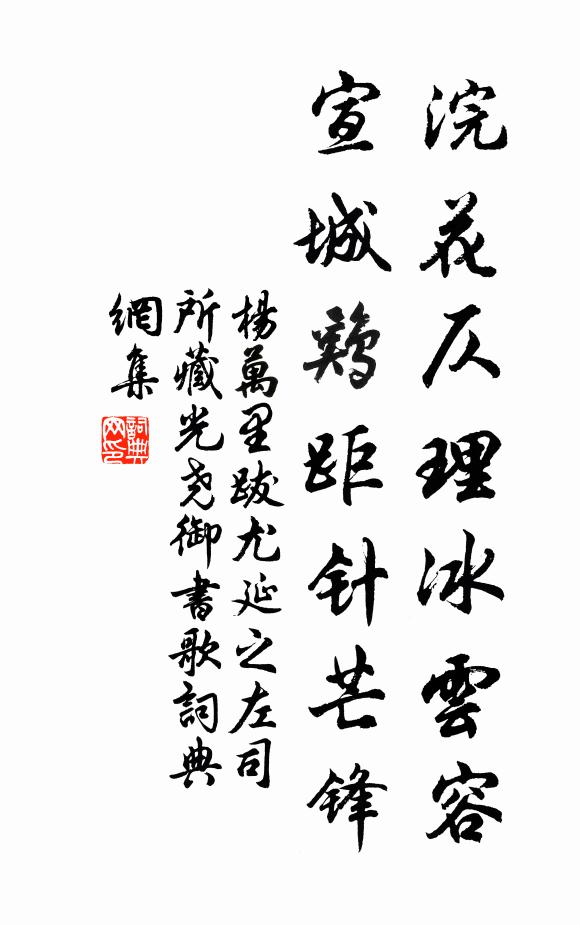 浣花仄理冰雲容
宣城鷄距针芒锋
楊萬里跋尤延之左司
所藏光尧御書歌詞典
網集
詞典网印